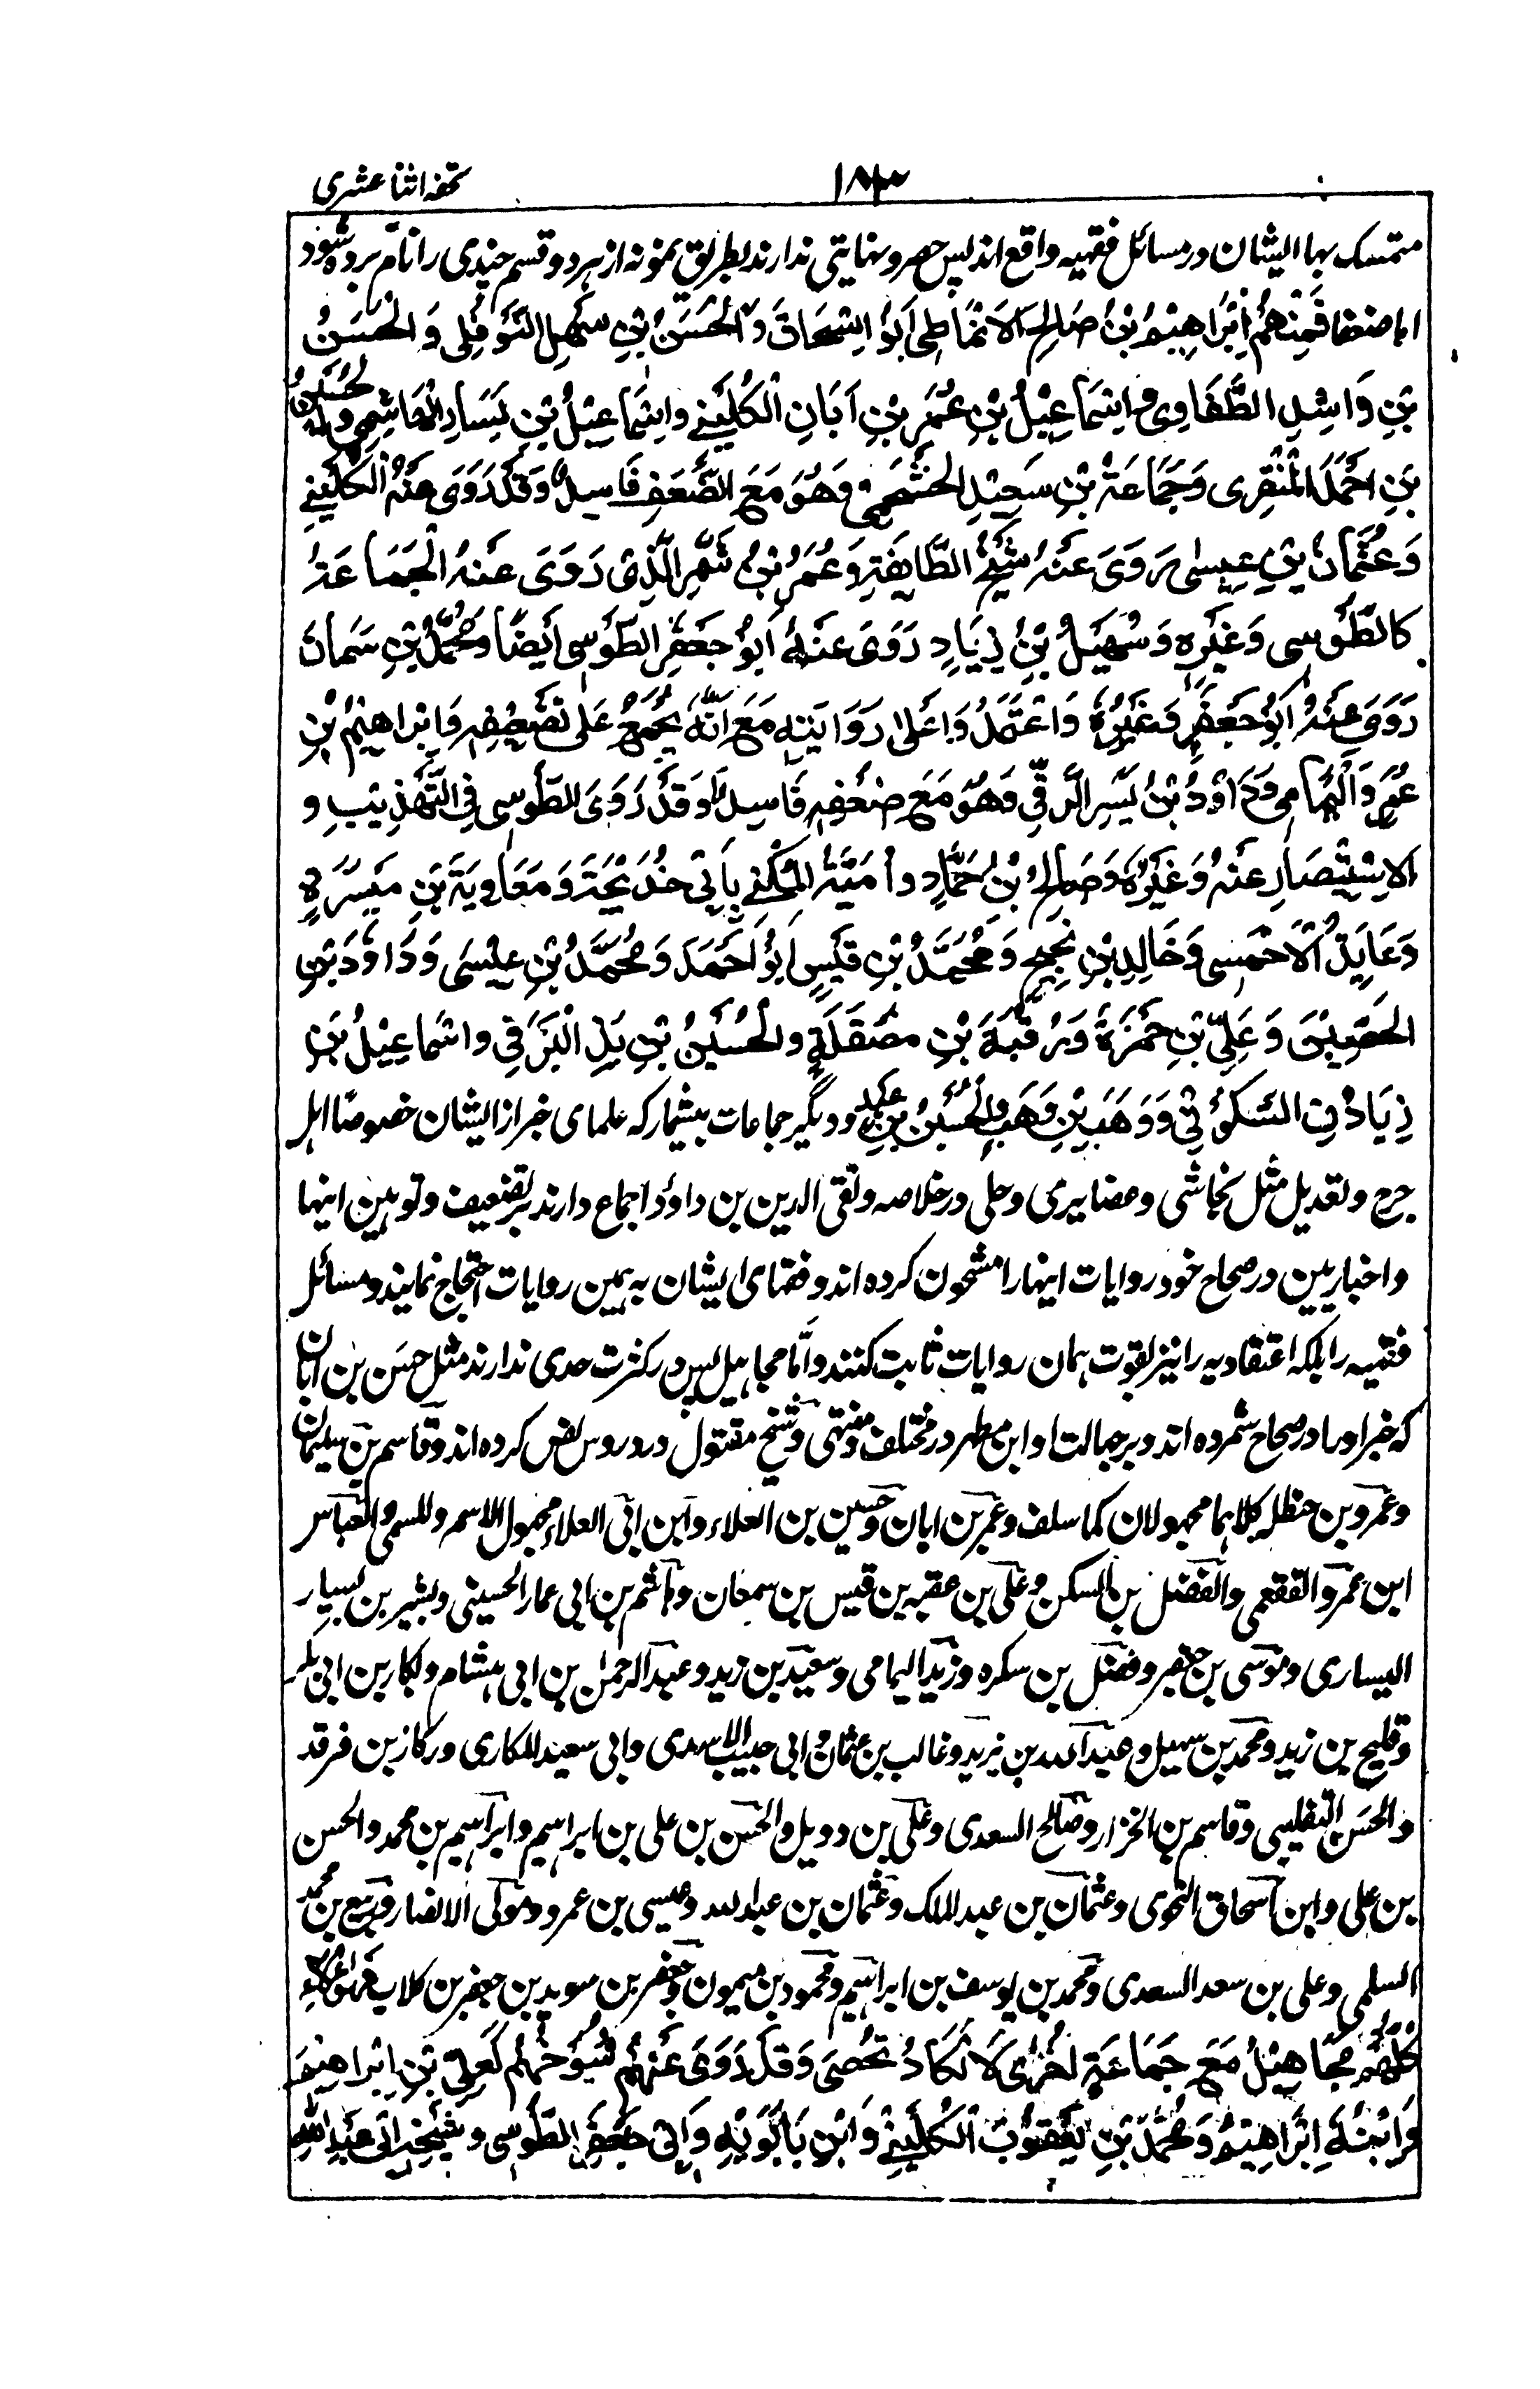 تحفه اثنا عشری
۱۸۳
متمسک بها ایشان در مسائل فقهیه واقع اند پس حصر و نهایتی ندارند بطریق نمونه از هر دو قسم چندی را نام برده شود
اما ضعفا فَمِنْهُمْ اِبْرَاهِیْمُ بْنُ صَالِحِ الْاَنْمَاطِی اَبُوْ اِسْحَاقَ وَالْحَسَنُ بْنِ سَهْلِ النَّوْفِلِی وَالْحَسَنُ
بْنِ رَاشِدِ الطَّفَاوِی وَاِسْمَاعِیْلُ بْنِ عُمَرِ بْنِ اَبَانِ الْکُلَیْنِے وَاِسْمَاعِیْلُ بْنِ یَسَارِ الْهَاشِمِی وَالْحُسَیْنُ
بْنِ اَحْمَدَ الْمَنْقِرِی وَجَمَاعَةُ بْنِ سَعِیْدِ الْخَثْعَمِی وَهُوَ مَعَ الضُّعْفِ فَاسِدٌ وَقَدْ رَوَی عَنْهُ الْکُلَیْنِے
وَعُثْمَانُ بْنِ عِیسٰی رَوَی عَنْهُ شَیْخُ الطَّایِفَةِ وَعُمَرُ بْنُ شَمْرِ الَّذِی رَوَی عَنْهُ الْجَمَاعَةُ
کَالطُّوْسِی وَغَیْرِهِ وَسُهَیْلُ بْنُ زِیَادٍ رَوَی عَنْهُ اَبُوْ جَعْفَرِ الطُّوْسِی اَیْضًا وَمُحَمَّدُ بْنِ سَمَانَ
رَوَی عَنْهُ اَبُوْ جَعْفَرٍ وَغَیْرُهٗ وَاعْتَمَدُ وْا عَلَا رَوَایَتِهِ مَعَ اَنَّهُ یُجْمَعُ عَلَی تَضْعِیْفِهِ وَاِبْرَاهِیْمُ بْنِ
عُمَرِ وَالْیُمَامِی وَدَاوُدُ بْنُ کَثِیْرِ الرَّقِّی وَهُوَ مَعَ ضُعْفِهِ فَاسِدٌ وَقَدْ رَوَی الطُّوْسِی فِی التَّهْذِیْبِ وَ
الْاِسْتِبْصَارِ عَنْهُ وَغَیْرُهُ وَصَالِحُ بْنُ حَمَّادٍ وَاُمَیَّةُ الْمُکْنٰے بِاَبِی خَدِیْجَةَ وَمَعَاوِیَةَ بْنِ مَیْسَرَةٍ
وَعَایِذُ الْاَحْمَسِی وَخَالِدِ بْنِ نَجِیْحٍ وَمُحَمَّدُ بْنِ قَیْسٍ اَبُوْ اَحْمَدَ وَمُحَمَّدُ بْنِ عِیْسَی وَدَاوٗدَ بْنِ
الْحَصِیْنِ وَعَلِیِّ بْنِ حَمْزَةَ وَرُقْبَةَ بْنِ مَصْقَلَةٍ وَالْحُسَیْنُ بْنِ یَزِ الْبَرَقِی وَاِسْمَاعِیْلُ بْنِ
زِیَادُنِ السَّکُوْنِی وَوَهَبِ بْنِ وَهَبٍ وَالْحُسَیْنُ بْنِ عُبَیْدٍ و دیگر جماعات بیشمار که علمای خبر از ایشان خصوصًا اهل
جرح و تعدیل مثل نجاشی و غضایری و حلی در خلاصه و تقی الدین بن داؤد اجماع دارند بر تضعیف و توهین اینها
و اخباریین در صحاح خود روایات اینها را مشحون کرده اند و فقهای ایشان به همین روایات احتجاج نمایند و مسائل
فقهیه را بلکه اعتقادیه را نیز بقوت همان روایات ثابت کنند و اَمّا مجاهیل پس در کثرت حدی ندارند مثل حسن بن ابان
که خبر او را در صحاح شمرده اند و بر جهالت او ابن مطهر در مختلف و منتهی و شیخ مقتول در دروس نص کرده اند و قاسم بن سلیمان
و عمرو بن حنظله کلاهما مجهولان کما سلف و عمر بن ابان و حسین بن العلاء و ابن ابی العلاء مجهول الاسم والمسمی والعباس
ابن عمرو الفقعمی والفضل بن السکن و علی بن عقبه بن قیس بن سمعان و هاشم بن ابی عمار الحسینی و بشیر بن یسیار
الیساری و موسی بن جعفر و فضل بن سکره و زید الیمامی و سعید بن زید و عبد الرحمٰن بن ابی هشام و بکار بن ابی بکر
و فلیح بن زید و محمد بن سهیل و عبد الله بن یزید و غالب بن عثمان و ابی حبیب الاسدی و ابی سعید المکاری و رکاز بن فرقد
والحسن التفلیسی و قاسم بن الخزار و صالح السعدی و علی بن دویل والحسن بن علی بن ابراهیم و ابراهیم بن محمد والحسن
بن علی و ابن اسحاق النحوی و عثمان بن عبد الملک و عثمان بن عبد الله و عیسی بن عمرو و مولی الانصار و ربیع بن محمد
السلمی و علی بن سعد السعدی و محمد بن یوسف بن ابراهیم و محمود بن میمون و جعفر بن سوید بن جعفر بن کلاب فَهٰؤُلَاءِ
کُلُّهُمْ مَجَاهِیْلُ مَعَ جَمَاعَةٍ اُخْرٰی لَا تَکَادُ تُحْصَی وَقَدْ رَوَی عَنْهُمْ شُیُوْخُهُمْ کَعَلِیِّ بْنِ اِبْرَاهِیْمَ
وَابْنُهُ اِبْرَاهِیْمُ وَمُحَمَّدُ بْنِ یَعْقُوْبَ الْکُلَیْنِے وَابْنِ بَابَوَیْهِ وَاَبِی جَعْفَرِ الطُّوْسِی وَشَیْخِهِ اَبِی عَبْدِ اللهِ